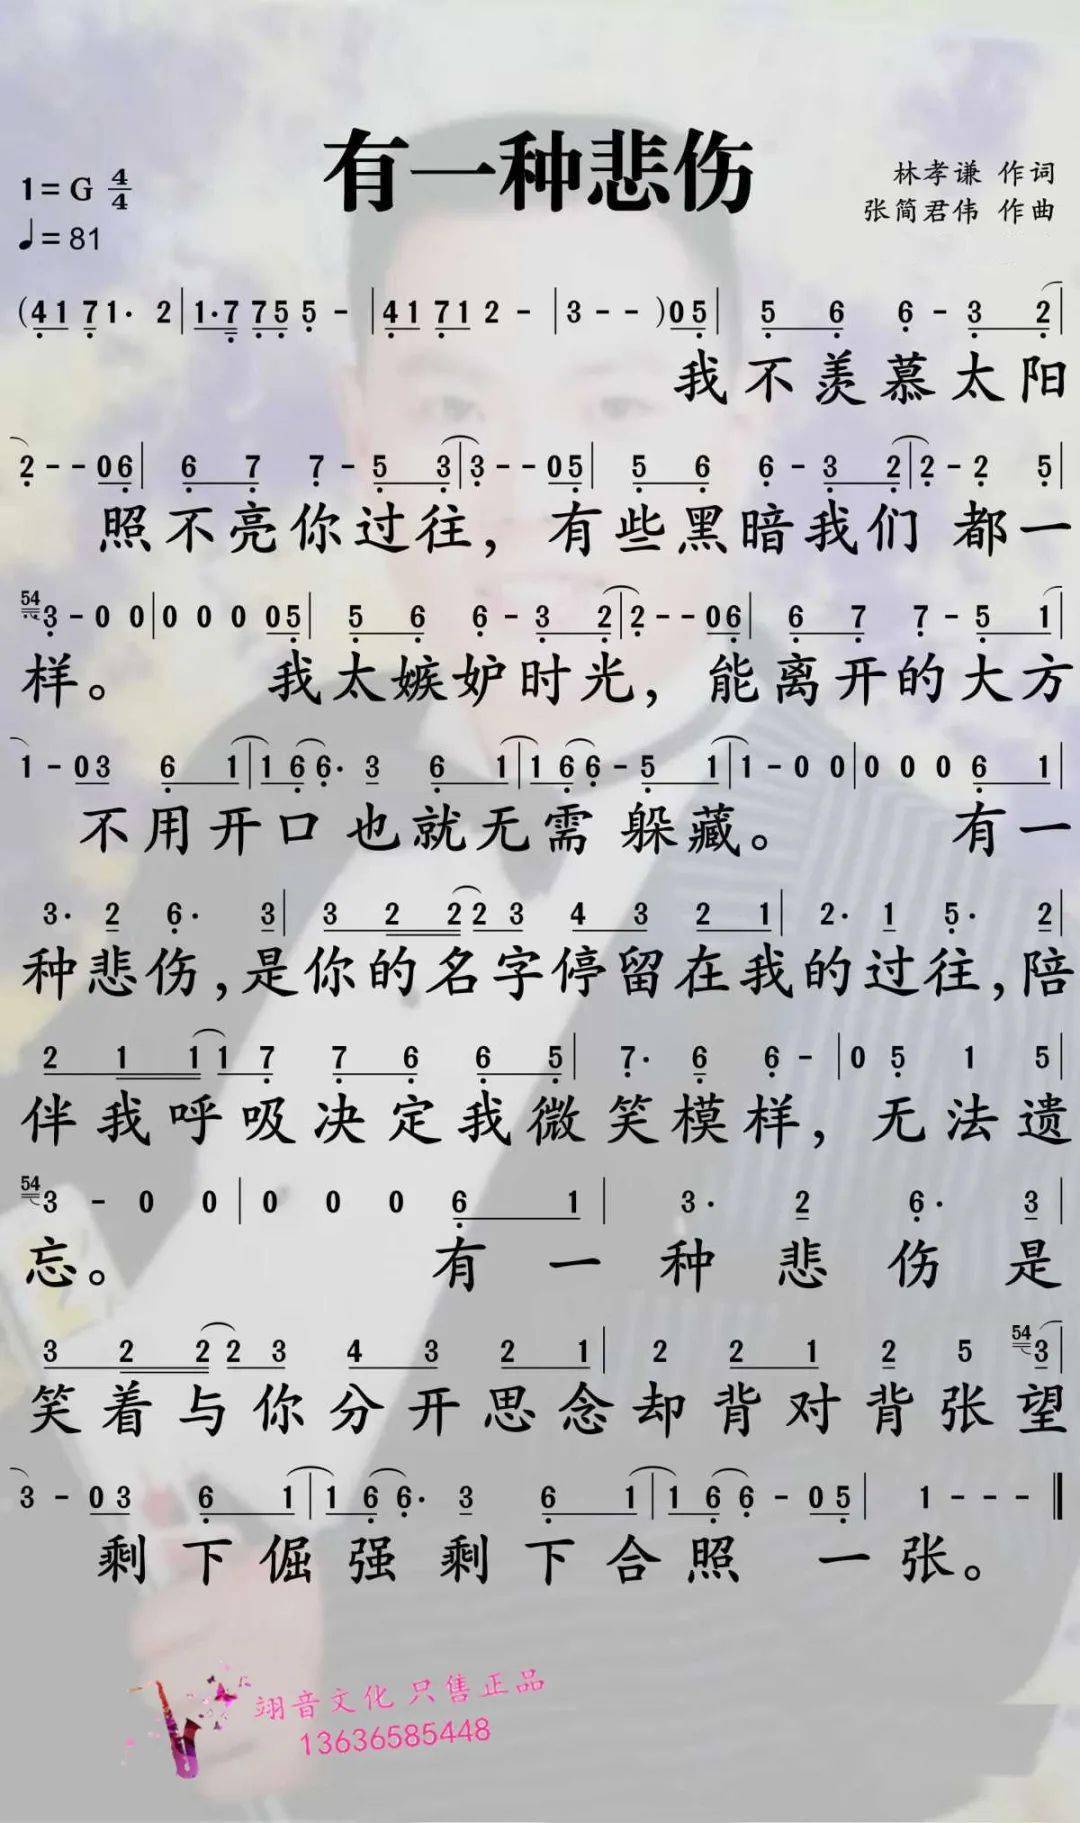 有一种悲伤
1=G 4/4
♩=81
林孝谦 作词
张简君伟 作曲
(41 71· 2|1·7 75 5 -|41 71 2 -|3 - - -)05|5 6 6 - 3 2|
我不羡慕太阳
2 - - 06|6 7 7 - 5 3|3 - - 05|5 6 6 - 3 2|2 - 2 5|
照不亮你过往，有些黑暗我们 都一
54 3 - 0 0|0 0 0 05|5 6 6 - 3 2|2 - - 06|6 7 7 - 5 1|
样。 我太嫉妒时光，能离开的大方
1 - 03 6 1|1 6 6· 3 6 1|1 6 6 - 5 1|1 - 0 0|0 0 0 6 1|
不用开口也就无需躲藏。 有一
3· 2 6· 3|3 2 2 2 3 4 3 2 1|2· 1 5· 2|
种悲伤，是你的名字停留在我的过往，陪
2 1 1 1 7 7 6 6 5|7· 6 6 -|0 5 1 5|
伴我呼吸决定我微笑模样，无法遗
54 3 - 0 0|0 0 0 6 1|3· 2 6· 3|
忘。 有一种悲伤是
3 2 2 2 3 4 3 2 1|2 2 1 2 5 54 3|
笑着与你分开思念却背对背张望
3 - 03 6 1|1 6 6· 3 6 1|1 6 6 - 05|1 - - -‖
剩下倔强剩下合照 一张。
翊音文化 只售正品
13636585448